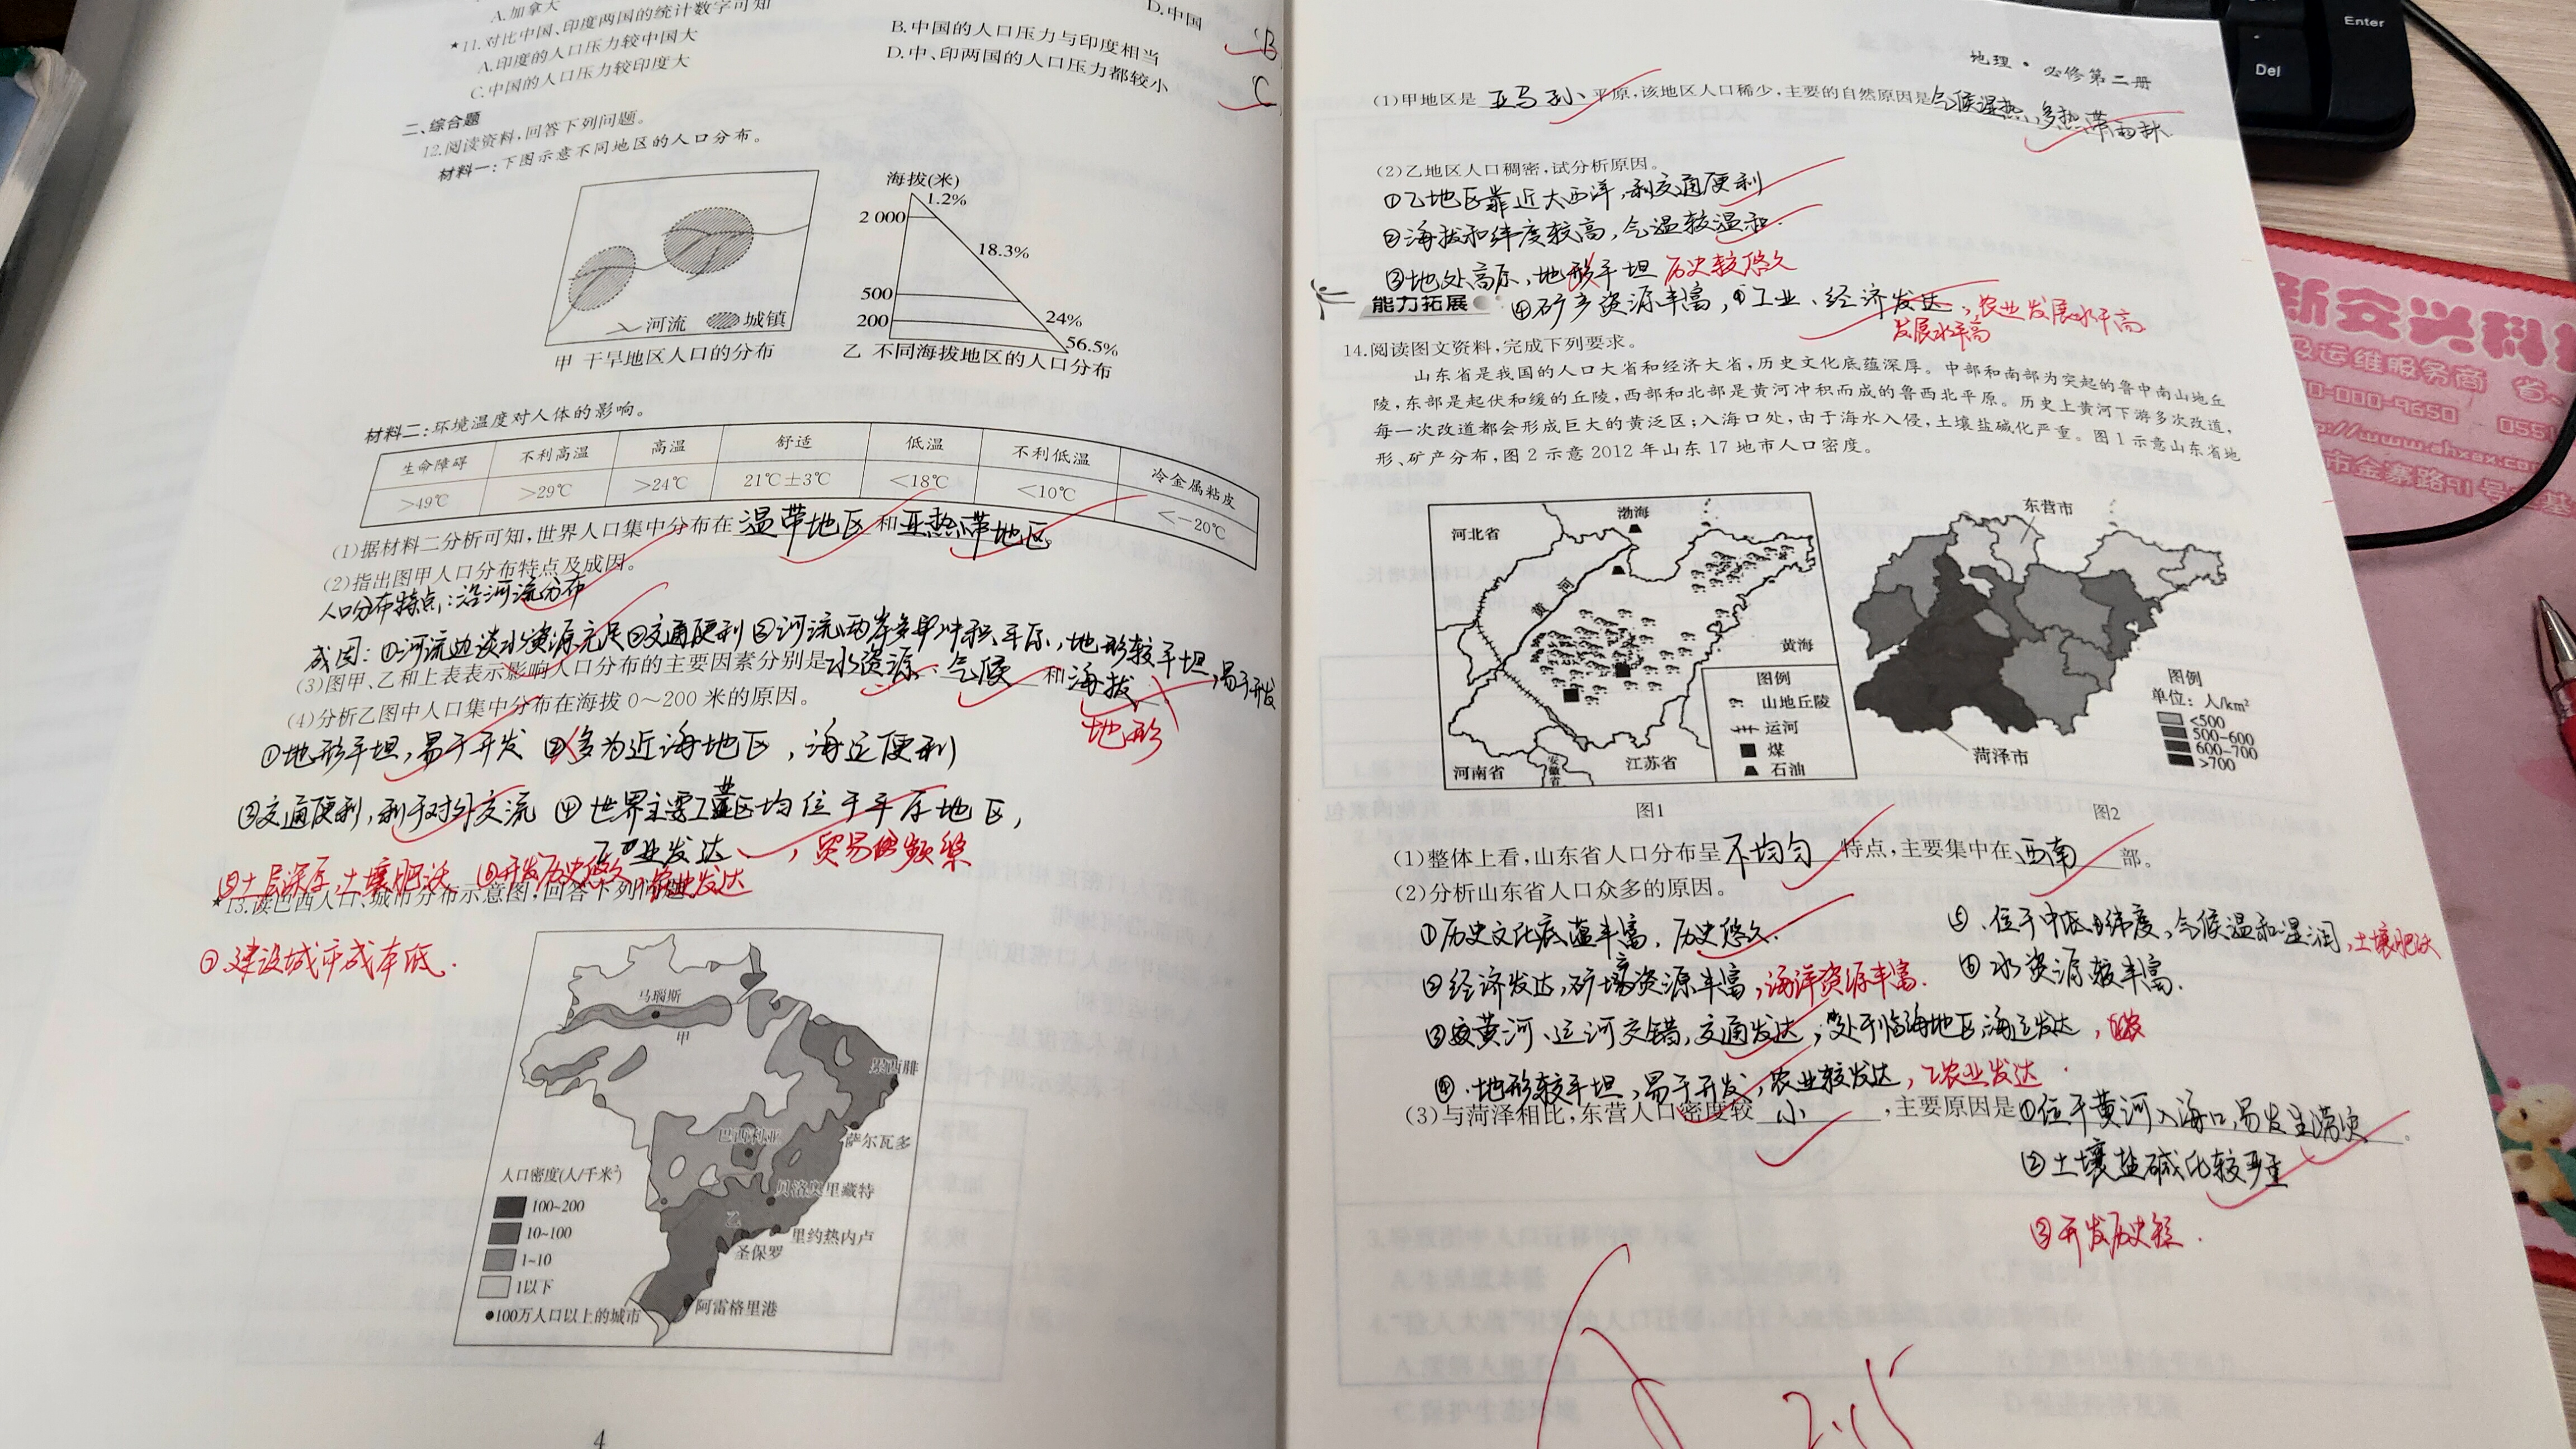 A.加拿大
D.中国
*11.对比中国、印度两国的统计数字可知
A.印度的人口压力较中国大
B.中国的人口压力与印度相当
C.中国的人口压力较印度大
D.中、印两国的人口压力都较小
B
C
二、综合题
12.阅读资料,回答下列问题。
材料一:下图示意不同地区的人口分布。
河流 城镇
甲 干旱地区人口的分布
海拔(米)
1.2%
2 000
18.3%
500
24%
200
56.5%
乙 不同海拔地区的人口分布
材料二:环境温度对人体的影响。
生命障碍 不利高温 高温 舒适 低温 不利低温 冷金属粘皮
>49℃ >29℃ >24℃ 21℃±3℃ <18℃ <10℃ <-20℃
(1)据材料二分析可知,世界人口集中分布在 温带地区 和 亚热带地区。
(2)指出图甲人口分布特点及成因。
人口分布特点:沿河流分布
成因:①河流边淡水资源充足②交通便利③河流两岸多冲积平原,地形较平坦,易于开发
(3)图甲、乙和上表表示影响人口分布的主要因素分别是 水资源、气候 和 海拔。
地形
(4)分析乙图中人口集中分布在海拔 0～200 米的原因。
①地形平坦,易于开发 ②多为近海地区,海运便利
③交通便利,利于对外交流 ④世界主要工业区均位于平原地区,
工业发达,贸易频繁
⑤土层深厚,土壤肥沃 ⑥开发历史悠久,农业发达
*13.读巴西人口、城市分布示意图,回答下列问题。
⑦建设城市成本低.
马瑙斯
甲
累西腓
巴西利亚
萨尔瓦多
贝洛奥里藏特
乙
里约热内卢
圣保罗
阿雷格里港
人口密度(人/千米²)
100~200
10~100
1~10
1以下
●100万人口以上的城市
4
地理·必修第二册
(1)甲地区是 亚马孙 平原,该地区人口稀少,主要的自然原因是 气候湿热,多热带雨林.
(2)乙地区人口稠密,试分析原因。
①乙地区靠近大西洋,利交通便利
②海拔和纬度较高,气温较温和.
③地处高原,地形平坦 历史较悠久
能力拓展 ④矿产资源丰富,工业、经济发达,农业发展水平高
发展水平高
14.阅读图文资料,完成下列要求。
山东省是我国的人口大省和经济大省,历史文化底蕴深厚。中部和南部为突起的鲁中南山地丘
陵,东部是起伏和缓的丘陵,西部和北部是黄河冲积而成的鲁西北平原。历史上黄河下游多次改道,
每一次改道都会形成巨大的黄泛区;入海口处,由于海水入侵,土壤盐碱化严重。图 1 示意山东省地
形、矿产分布,图 2 示意 2012 年山东 17 地市人口密度。
河北省
渤海
黄河
黄海
河南省
安徽省
江苏省
图例
山地丘陵
运河
煤
石油
图1
东营市
菏泽市
图例
单位：人/km²
<500
500-600
600-700
>700
图2
(1)整体上看,山东省人口分布呈 不均匀 特点,主要集中在 西南 部。
(2)分析山东省人口众多的原因。
①历史文化底蕴丰富,历史悠久.
②经济发达,矿产资源丰富,海洋资源丰富.
③黄河、运河交错,交通发达,处于临海地区,海运发达,
④.地形较平坦,易于开发,农业较发达,农业发达
⑤.位于中低纬度,气候温和湿润,土壤肥沃
⑥水资源较丰富.
(3)与菏泽相比,东营人口密度较 小 ,主要原因是①位于黄河入海口,易发生涝灾。
②土壤盐碱化较严重
③开发历史短.
2.15
Enter
Del
新安兴科
及运维服务商
000-9650
0551
http://www.ahxax.com
市金寨路91号